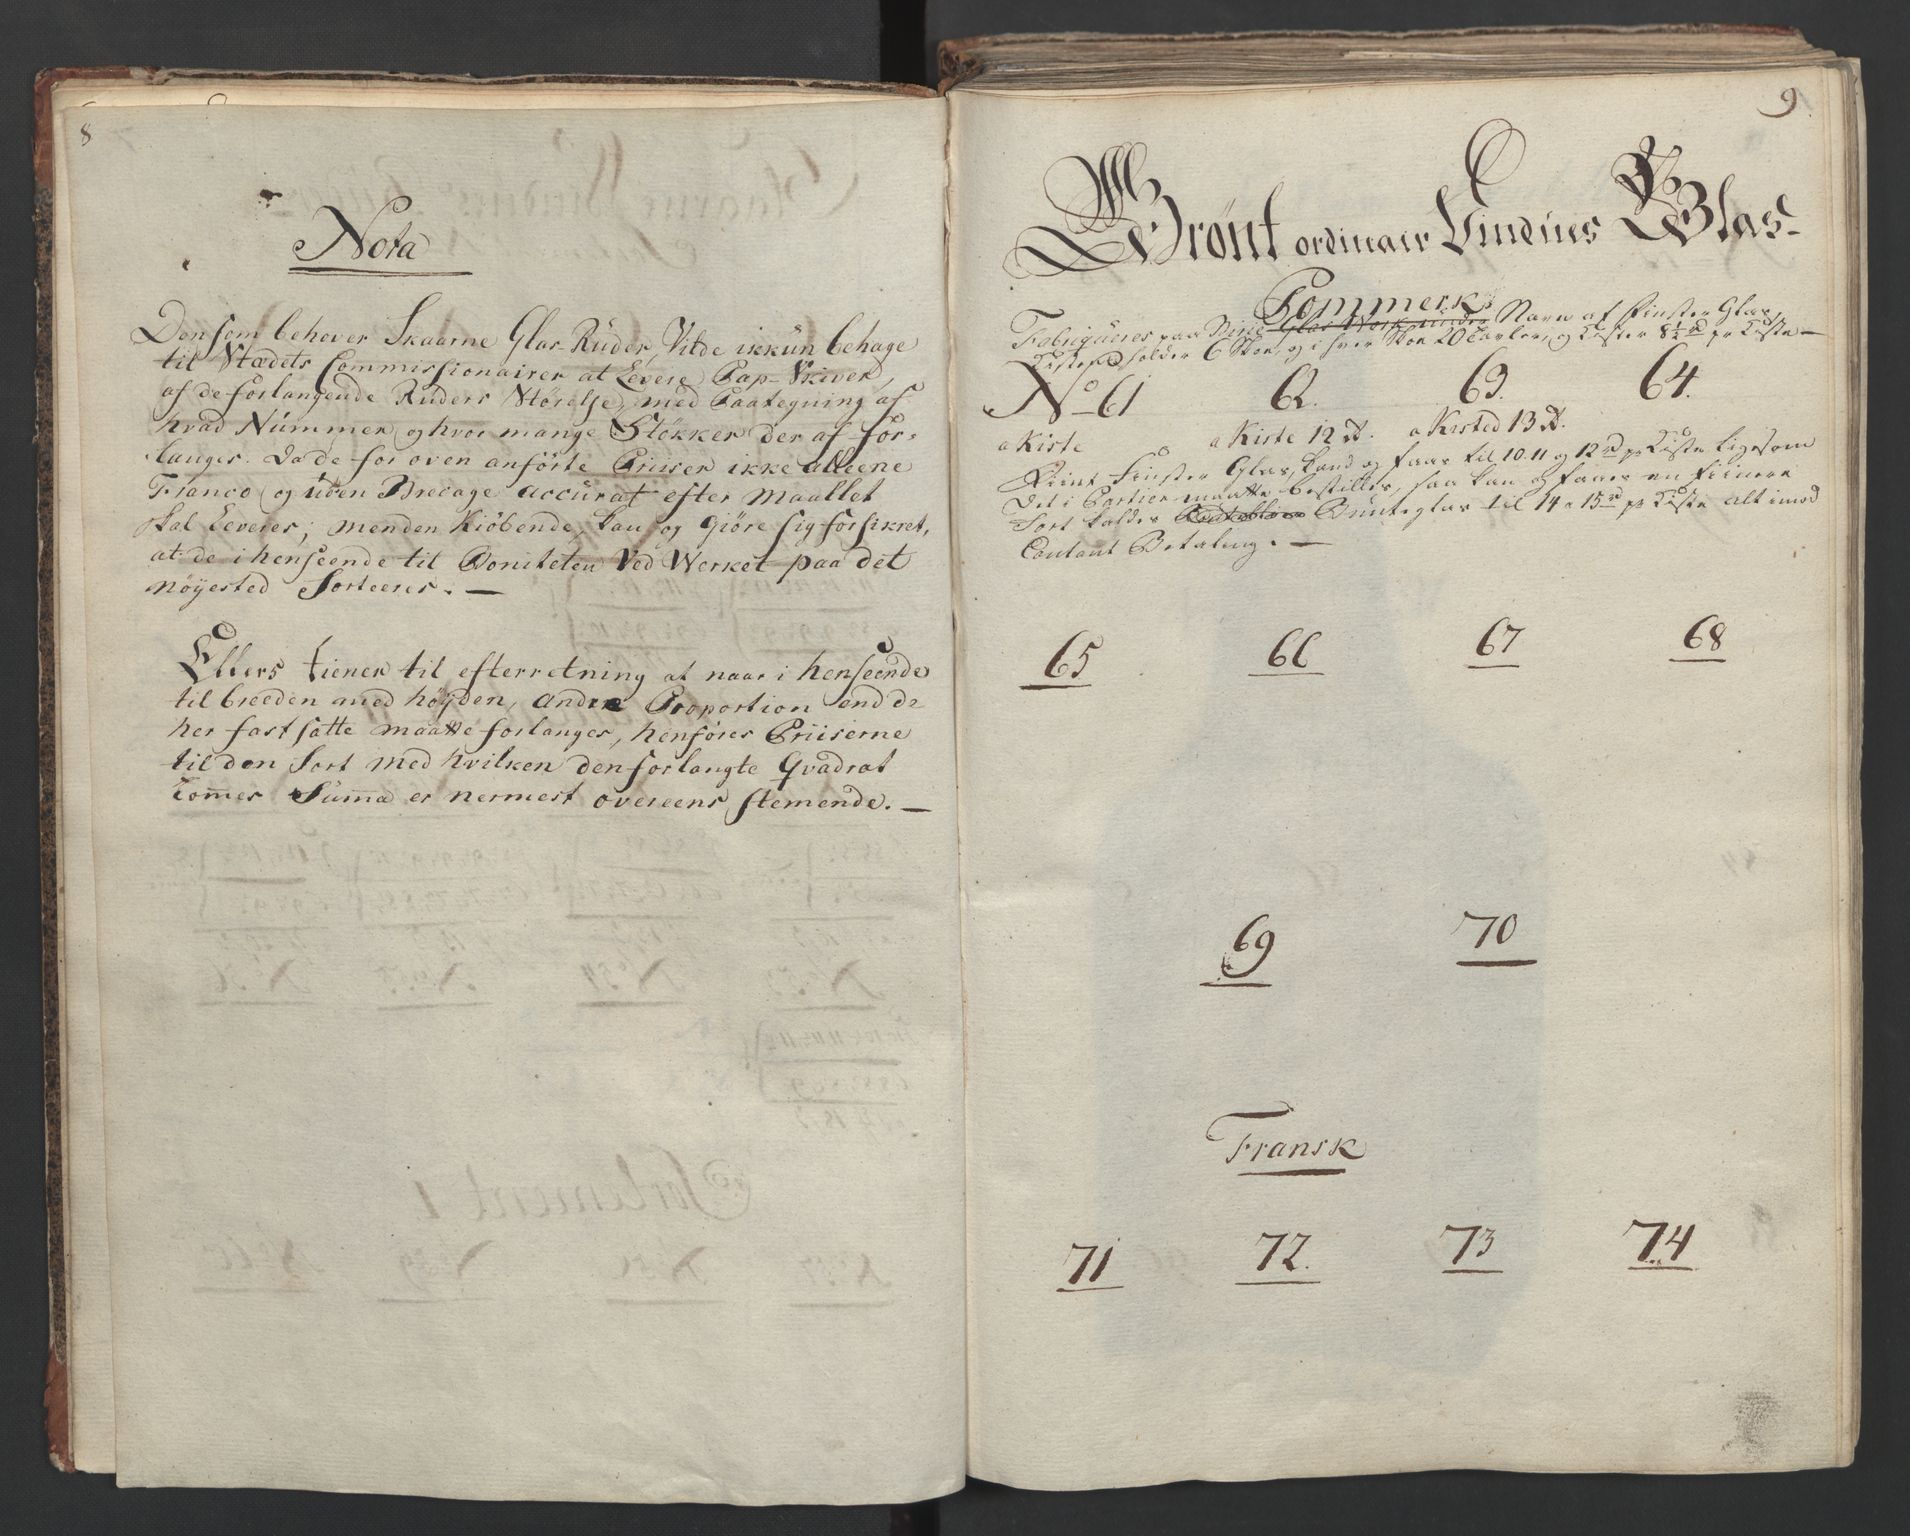 8
Nota
Den som behøver Skaarne Glas-Ruder, Vilde ikkun behage
til Stædets Commissionairer at Levere Pap-Skiver,
af de forlangende Ruders Størelse, med Paategning af
hvad Nummer, og hvor mange Støkker der af for-
langes. Da de for oven anførte Priiser ikke alleene
Franco og uden Brecage accurat efter Maallet
skal Leveres; menden Kiøbende, kan og Giøre sig forsikret,
at de i henseende til Boniteten Ved Werket paa det
nøyested Sorteeres. —
Ellers tiener til efterretning at naar i henseende
til breeden med høyden, andre Proportion end de
her fastsatte maatte forlanges, henføres Priiserne
til den Sort med hvilken den forlangte Qvadrat
Tom̅es Sum̅a er nermest overeens stemende. —
9
Grønt ordinair Vindues Glas-
Pommersk
Fabriqueres paa Glas Werk under Navn af Finster Glas,
Kisten holder 6 Skor, og i hver Skor 20 Tavler, og Koster 8½ rd pr Kiste —
No 61 62. 63. 64.
a Kiste a Kiste 12 rd. a Kisted 13 rd.
Finster Glas, kand og faaes til 10. 11 og 12 rd pr Kiste ligesom
det i Partier maatte bestilles, saa kan og faaes en fiinere
Sort kaldes Bunteglas til 14 a 15 rd pr Kiste alt imod
Contant Betaling. —
65 66 67 68
69 70
Fransk
71 72. 73 74